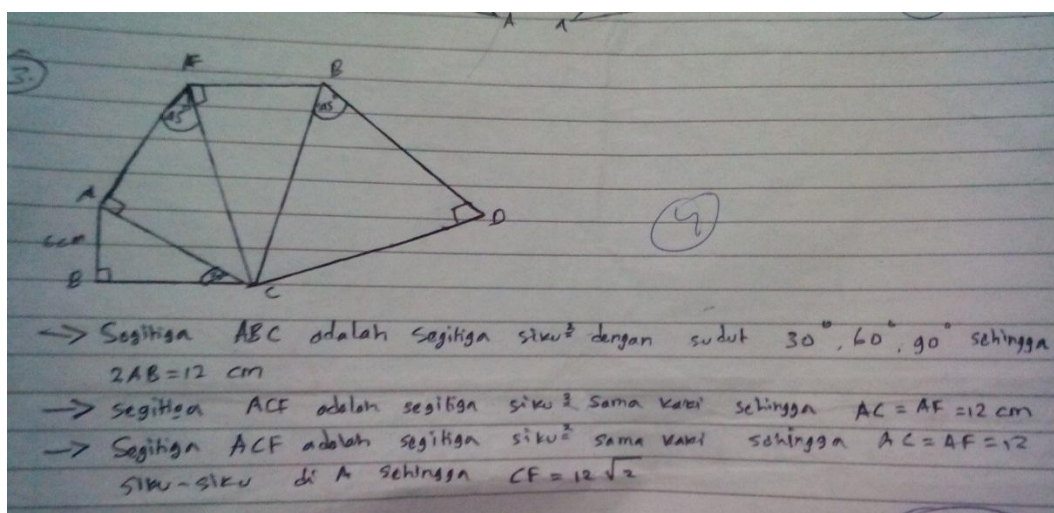 A
3.
F
B
45°
45°
A
D
6cm
B
30
C
4
-> Segitiga ABC adalah segitiga siku² dengan sudut 30°, 60°, 90° sehingga
2AB = 12 cm
-> segitiga ACF adalah segitiga siku² sama kaki sehingga AC = AF = 12 cm
-> Segitiga ACF adalah segitiga siku² sama kaki sehingga AC = AF = 12
siku-siku di A sehingga CF = 12√2